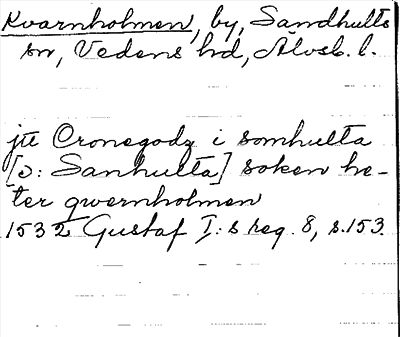 Kvarnholmen, by, Sandhults
sn, Vedens hd, Älvsb. l.
jtt Cronegodz i somhulta
[ɔ: Sanhulta] soken he-
ter qwernholmen
1532 Gustaf I:s reg. 8, s.153.